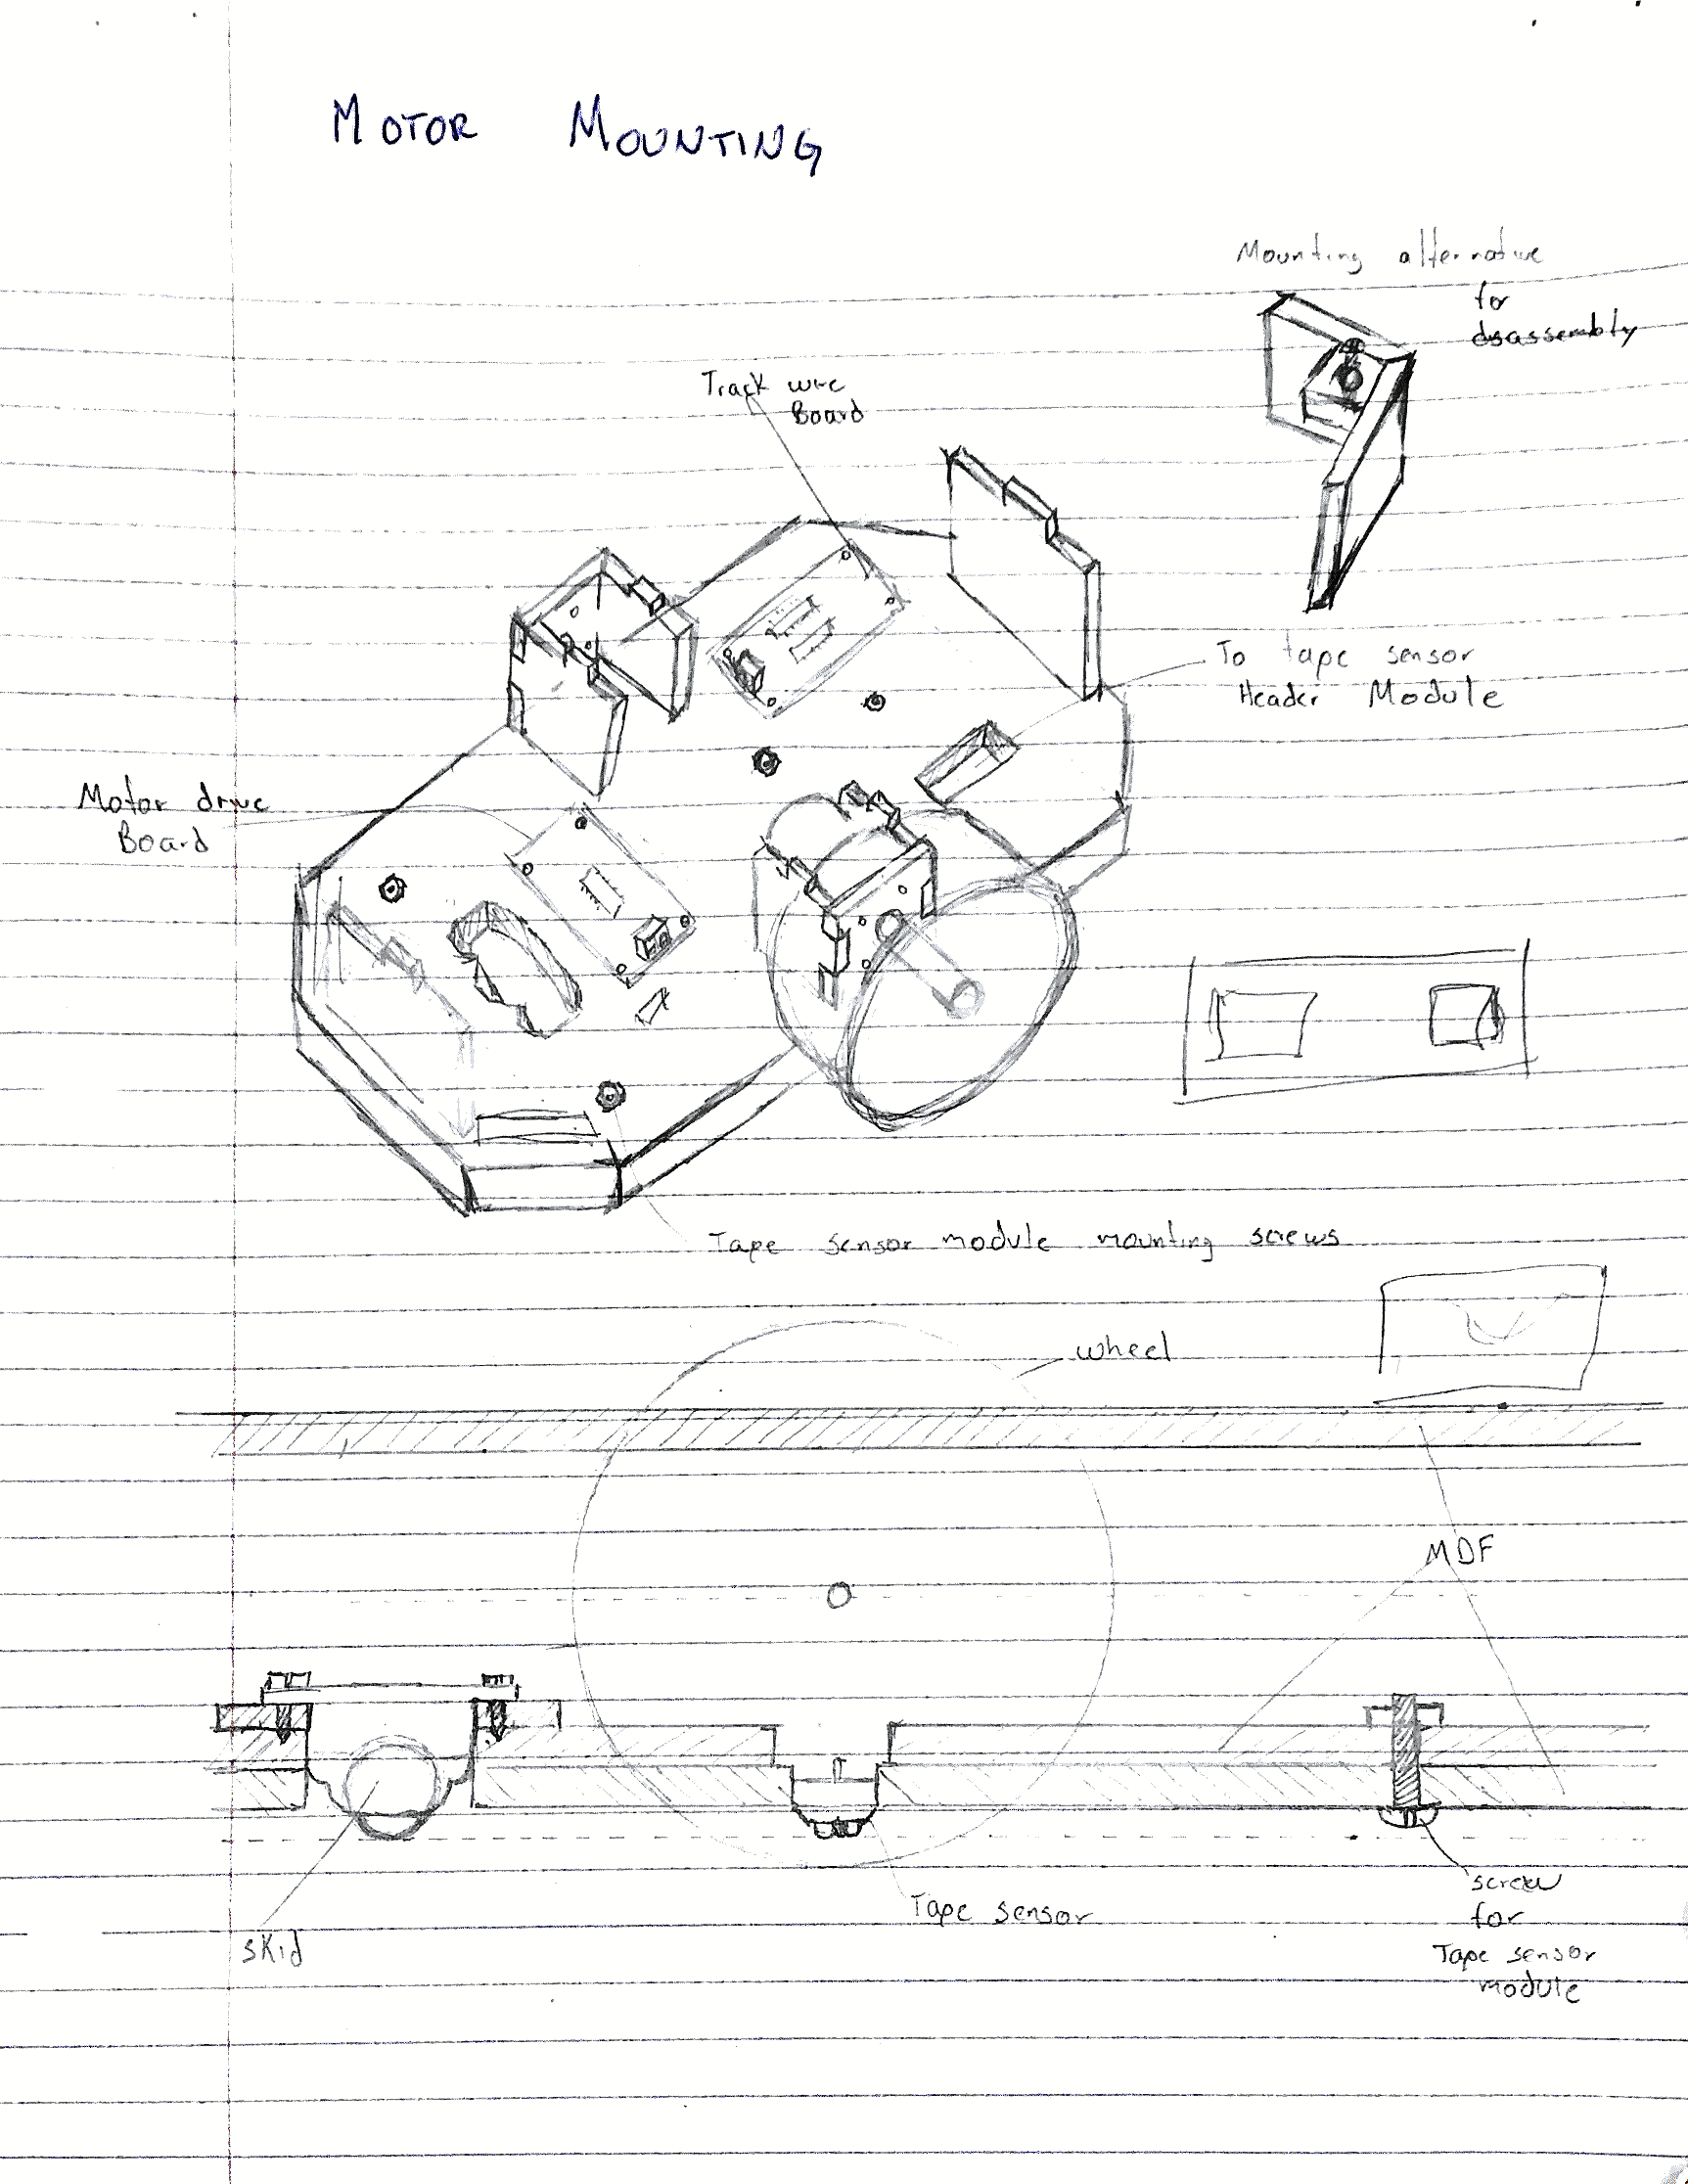 MOTOR MOUNTING
Mounting alternative
for
dsassembly
Track wire
Board
To tape sensor
Header Module
Motor drive
Board
Tape sensor module mounting screws
wheel
MDF
screw
for
Tape sensor
module
Tape sensor
skid